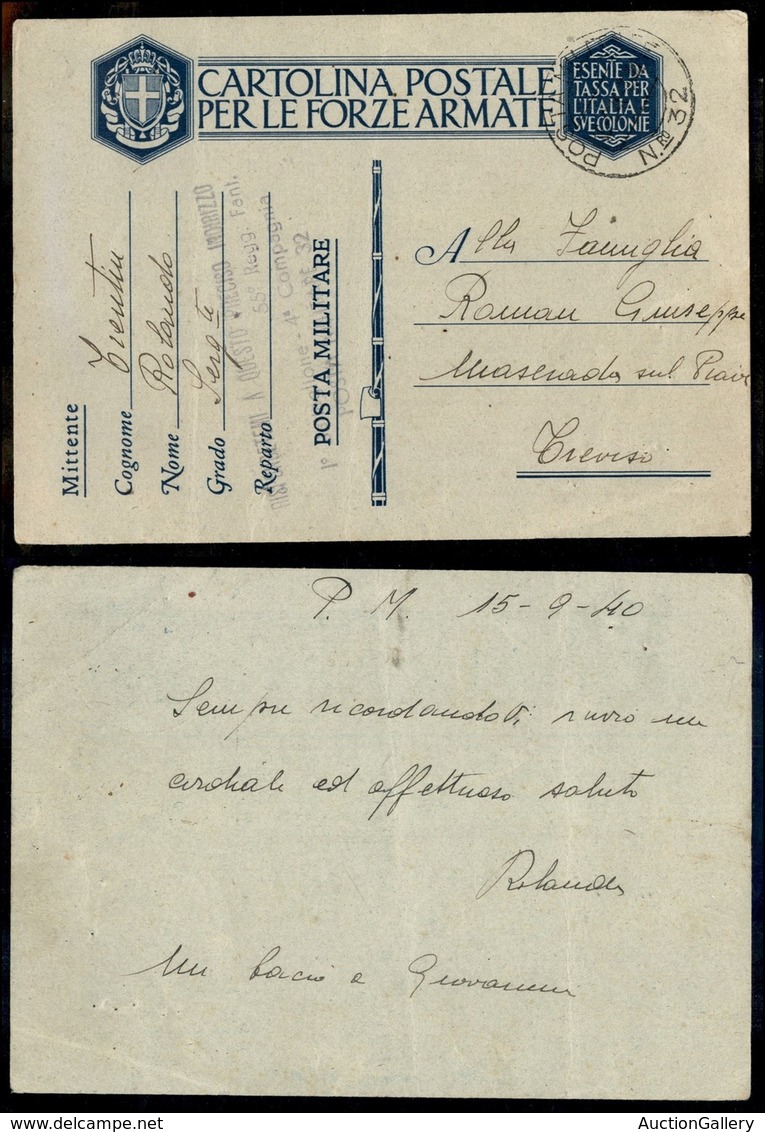 CARTOLINA POSTALE
PER LE FORZE ARMATE
ESENTE DA
TASSA PER
L'ITALIA E
SVE COLONIE
POSTA N.RO 32
Mittente
Cognome Trentin
Nome Rolando
Grado Serg.te
Reparto
POSTA MILITARE
A QUESTO PRECISO INDIRIZZO
55° Regg. Fant.
1° - 4ª Compagnia
32
Alla Famiglia
Roman Giuseppe
Maserada sul Piave
Treviso
P. M. 15-9-40
Sempre ricordandoVi invio un
cordiale ed affettuoso saluto
Rolando
Un bacio a Giovanni
AuctionGallery